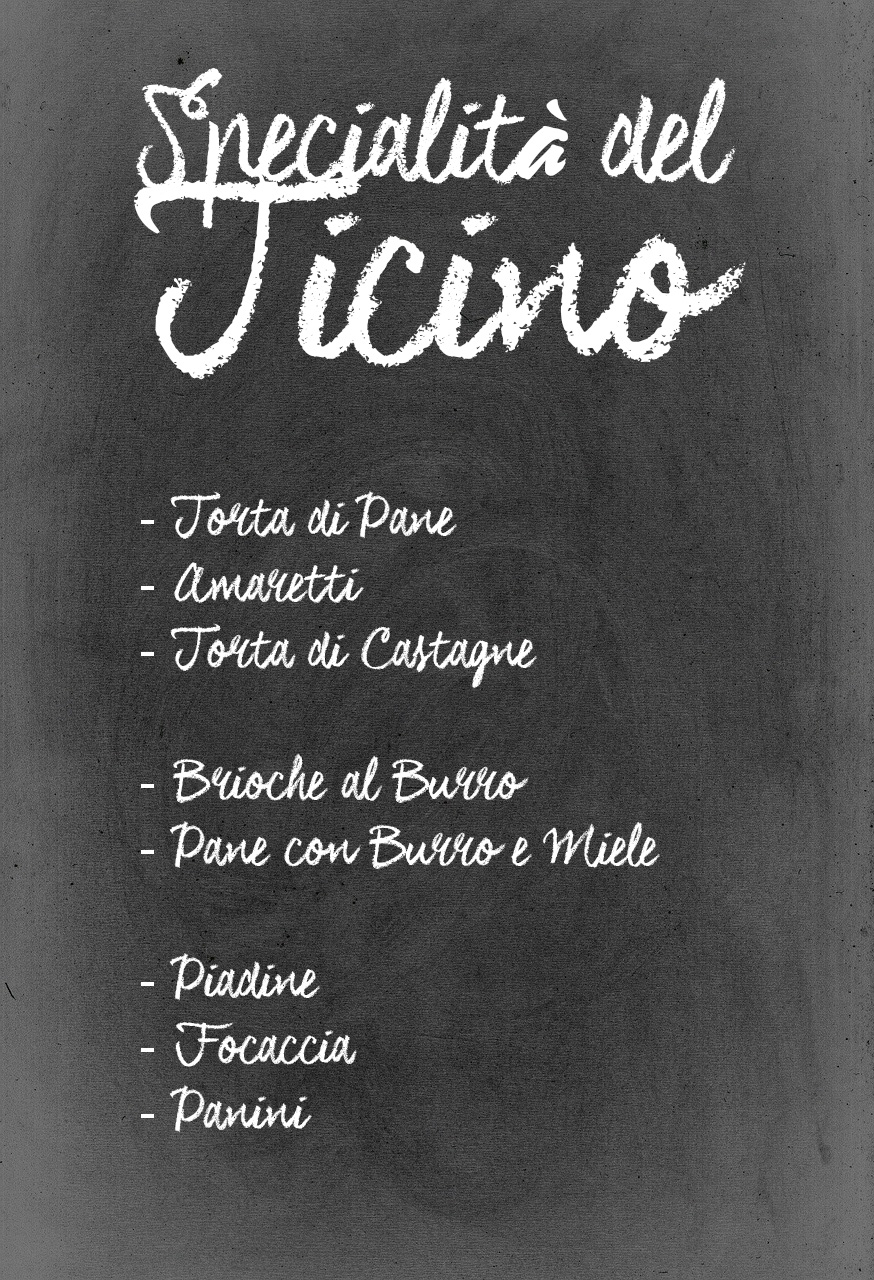 Specialità del
Ticino
- Torta di Pane
- Amaretti
- Torta di Castagne
- Brioche al Burro
- Pane con Burro e Miele
- Piadine
- Focaccia
- Panini